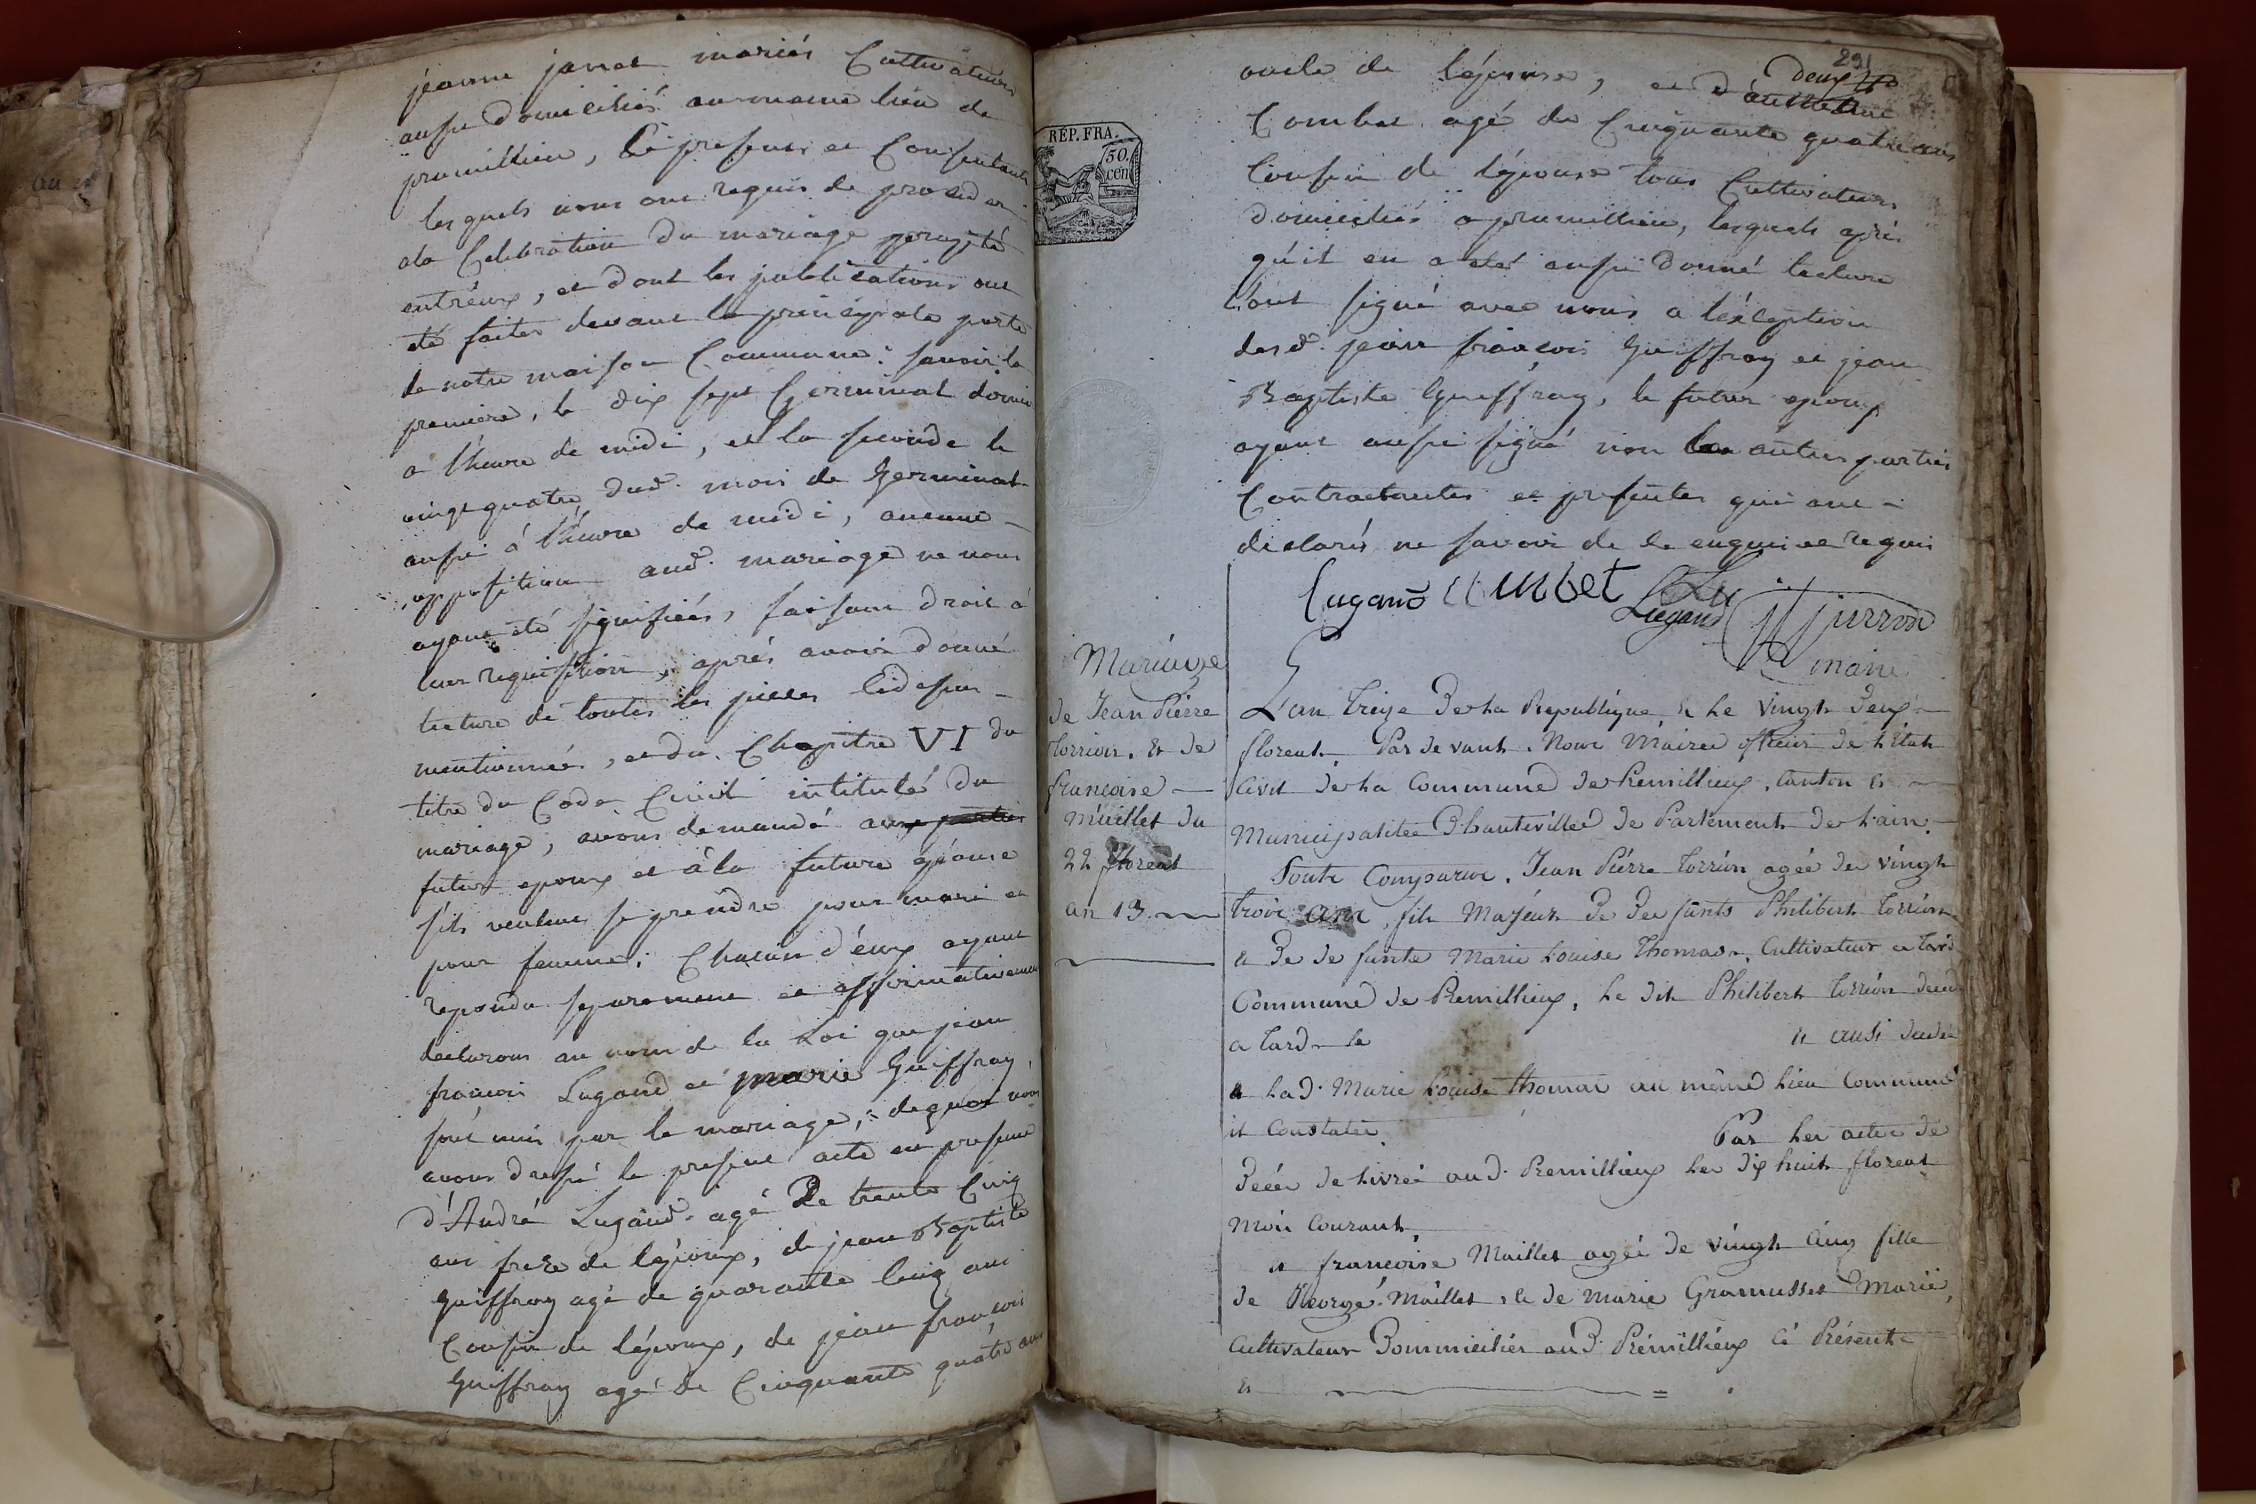 jeanne janet mariés Cultivateurs
aussi domiciliés au meme lieu de
prumillieu, Ci presents et Consentants
lesquels nous ont requis de proceder
ala Celebration du mariage projeté
entréux, et dont les publications ont
été faites devant la principale porte
de notre maison Commune: savoir la
premiere, le dix sept Germinal dernier
a l'heure de midi, et la seconde le
vingt quatre dud. mois de Germinal
aussi á l'heure de midi, aucune
opposition aud. mariage ne nous
ayant été signifiées, faisant droit á
leur requisition, aprés avoir donné
lecture de toutes les pieces Cidessus
mentionnées, et du Chapitre VI du
titre du Code Civil intitulé du
mariage, avons demandé aux parties
futur epoux et á la future epouse
s'ils veulent se prendre pour mari et
pour femme: Chacun d'eux ayant
repondu separement et affirmativement
declarons au nom de la Loi que jean
francois Lugand et marie Guiffray
sont unis par le mariage, de quoi nous
avons dressé le present acte en presence
d'André Lugand agé De trente Cinq
ans frere de l'epoux, de jean Baptiste
Guiffray agé de quarante Cinq ans
Cousin de l'époux, de jean françois
Guiffray agé de Cinquante quatre ans
291
oncle de l'épouse, et d'
deux
Combet agé de Cinquante quatre ans
Cousin de l'épouse tous Cultivateurs
domiciliés a prumillieu, lesquels aprés
qu'il en a eté aussi donné lecture
l'ont signé avec nous a l'éxception
desd. jean françois Guiffray et jean
Baptiste Guiffray, le futur epoux
ayant aussi signé non les autres parties
Contractantes et presentes qui ont
declarés ne savoir de ce enquis et requis
REP. FRA.
50.
cen
Lugand Cumbet Lu
Lugand
maire
Mariage
de Jean Pierre
Torrion. Et de
françoise
Maillet du
22 floreat
an 13.
L'an Treize De La Republique, & Le vingt Deux
floreat. Par devant. Nous Maire officier de L'Etat
Civil de La Commune de Premillieux, Canton &
Municipalitée D'hauteville De Partement de L'ain.
Sont Comparue. Jean Pierre Torrion agée de vingt
Trois ans, fils Majeur De Defunts Philibert Torrion
& De Defunte Marie Louise Thomas. Cultivateur a Tard
Commune de Premillieux, Le dit Philibert Torrion decedé
a Tard le & ausi
& La d. Marie Louise Thomas au même Lieu Commune
it Constatée. Par Les actes de
Décés de Livrée aud. Premillieux Les dix huit floreat
Mois Courant,
& françoise Maillet agée de vingt Cinq fille
de George Maillet, & de Marie Gramusset Mariée,
Cultivateur Dommiciliés au D. Premillieux Ci Présente
&